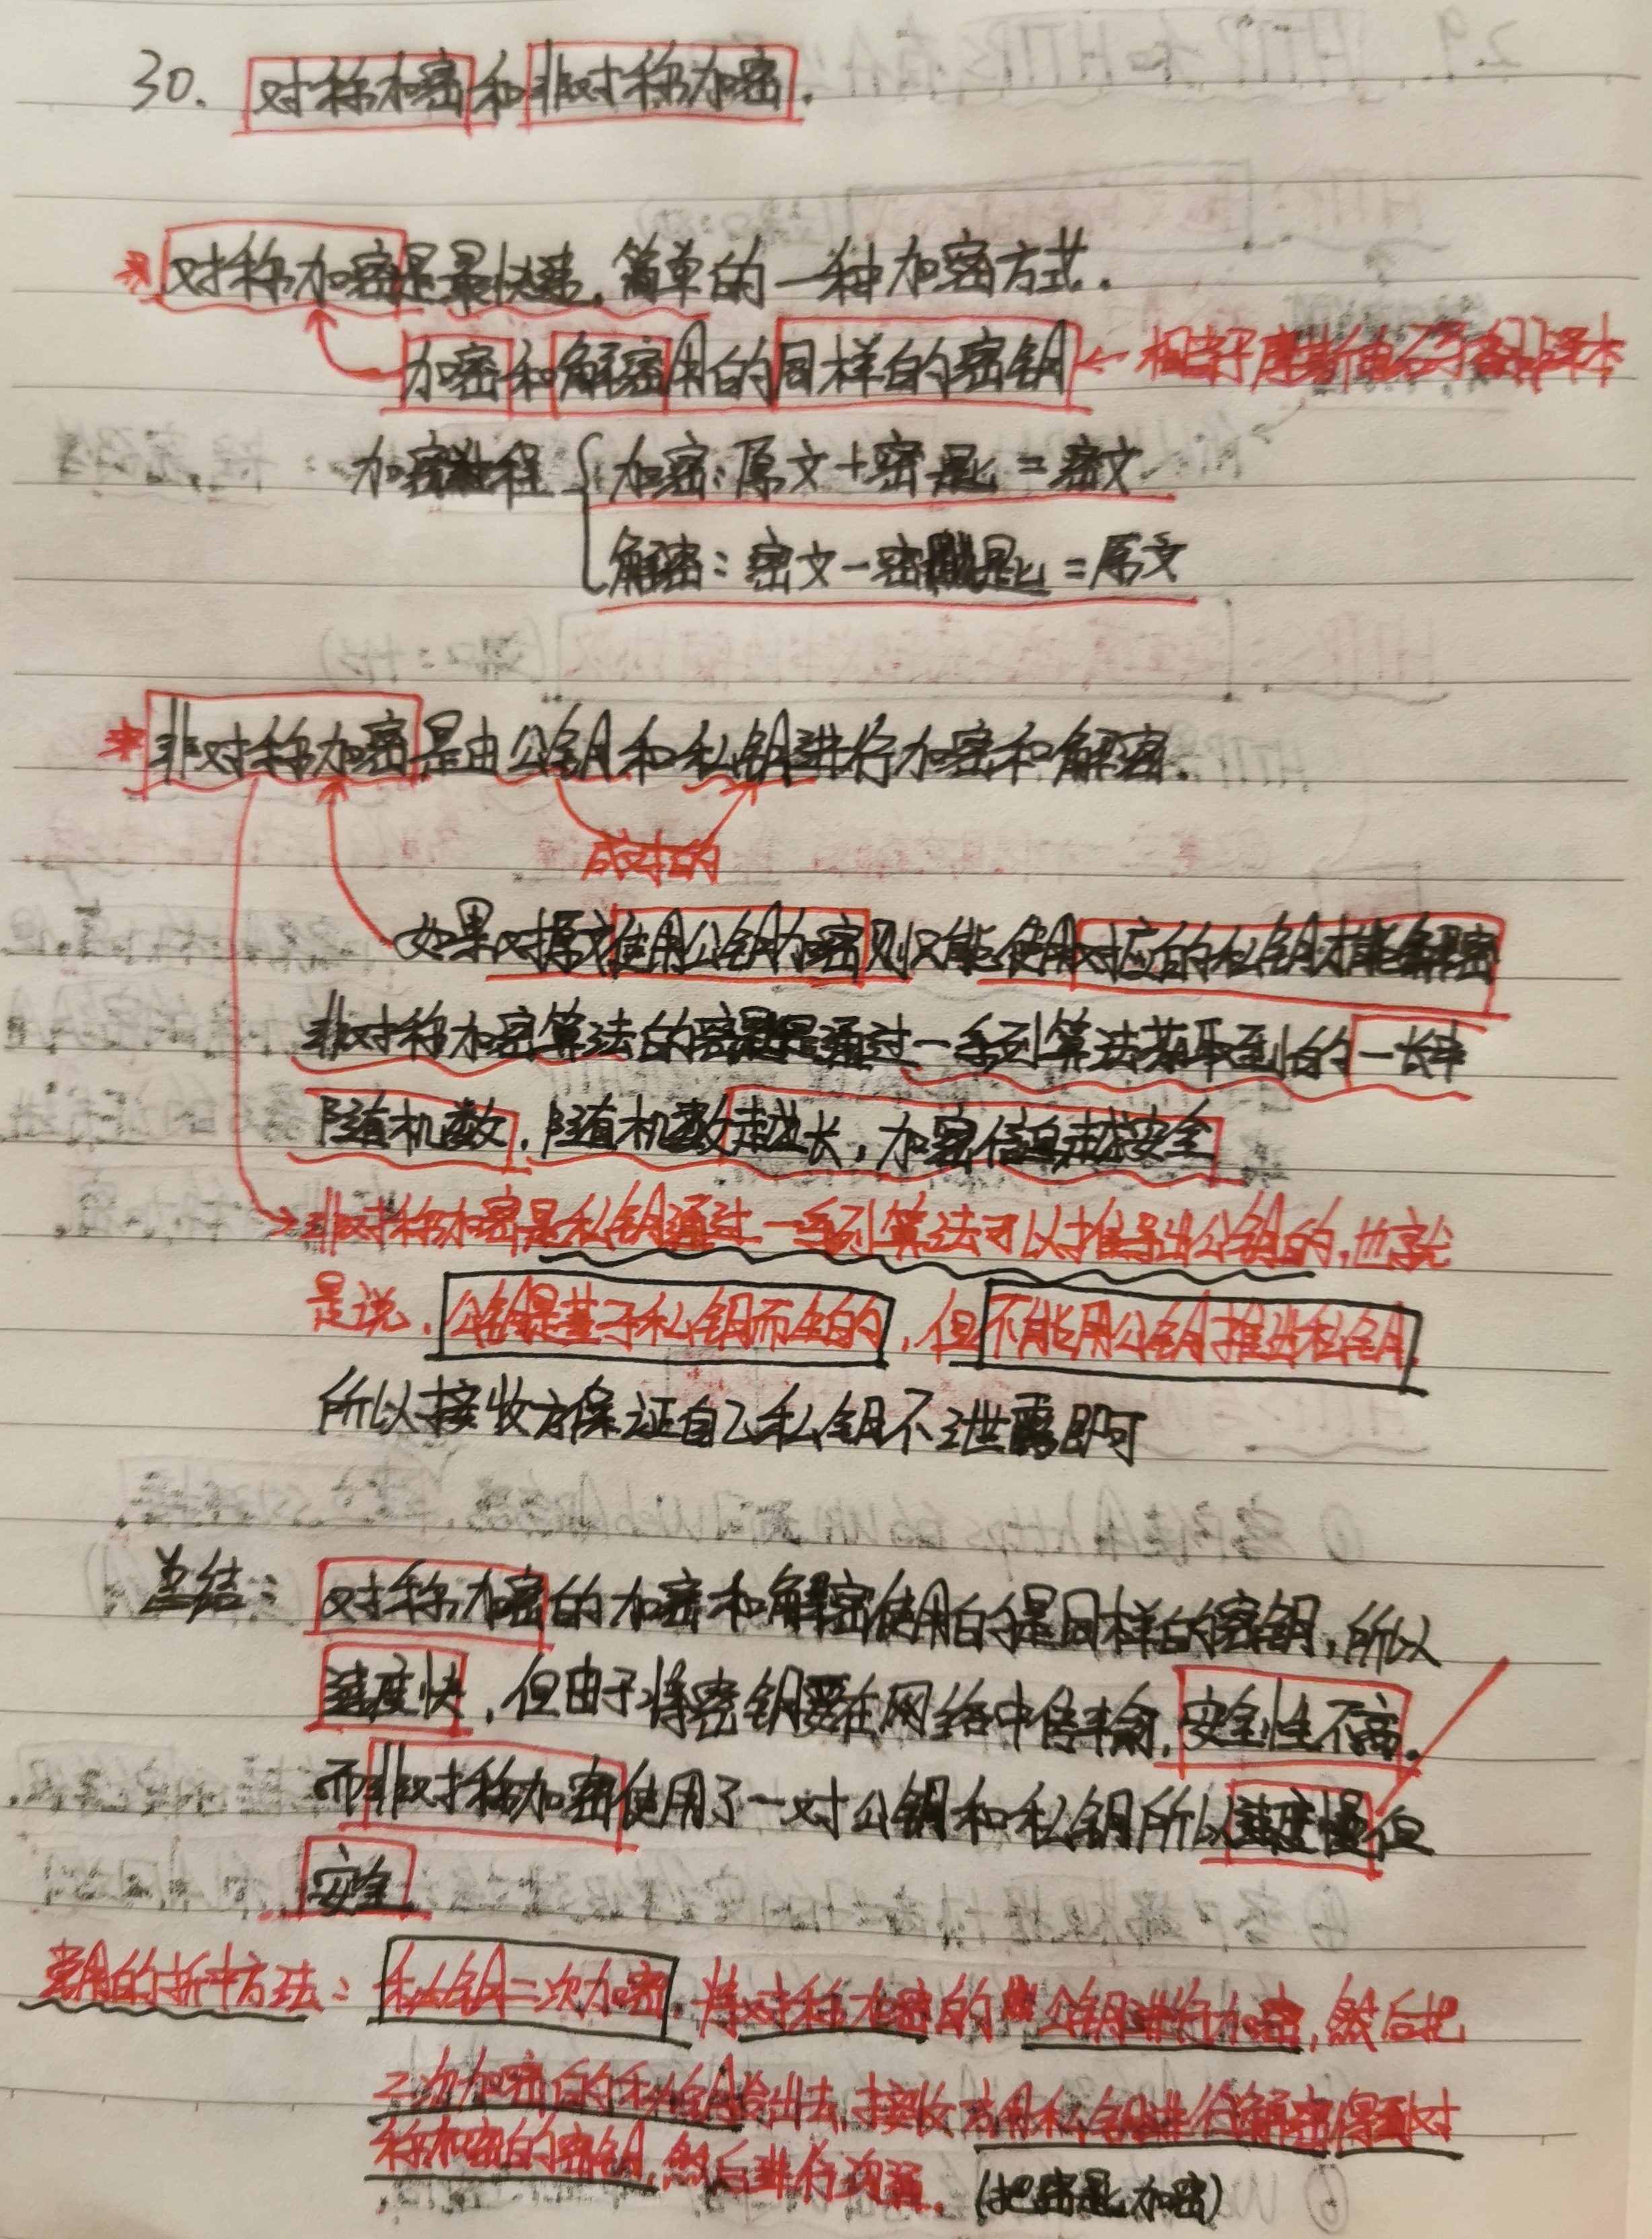 30. 对称加密和非对称加密.
对称加密是最快速,简单的一种加密方式.
加密和解密用的同样的密钥 ← 相当于摩斯
加密过程 { 加密:原文+密匙=密文
解密:密文-密匙=原文
非对称加密是由公钥和私钥进行加密和解密.
成对的
如果对原文使用公钥加密则只能使用对应的私钥才能解密
非对称加密算法的密匙是通过一系列算法获取到的一长串
随机数,随机数越长,加密信息越安全
非对称加密是私钥通过一系列算法可以推导出公钥的,也就
是说,公钥是基于私钥而生的,但不能用公钥推进私钥.
所以接收方保证自己私钥不泄露即可
总结: 对称加密的加密和解密使用的是同样的密钥,所以
速度快,但由于将密钥要在网络中传输,安全性不高.
而非对称加密使用了一对公钥和私钥所以速度慢但
安全
常用的折中方法: 私钥二次加密,将对称加密的 公钥进行加密,然后把
二次加密的私钥给出去,接收方用私钥进行解密得到对
称加密的密钥,然后进行沟通. (把密匙加密)